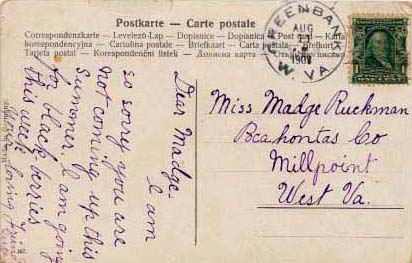 Postkarte — Carte postale
Correspondenzkarte — Levelező-Lap — Dopisnice — Dopisnica — Post card — Karta
korespondencyjna — Cartolina postale — Briefkaart — Carta postala — Brefkort
Tarjeta postal — Korespondenční listek —
GREENBANK
AUG
1908
W. VA.
Miss Madge Ruckman
Pocahontas Co
Millpoint
West Va.
Dear Madge-
I am
so sorry you are
not coming up this
Summer. I am going
for black-berries
this week